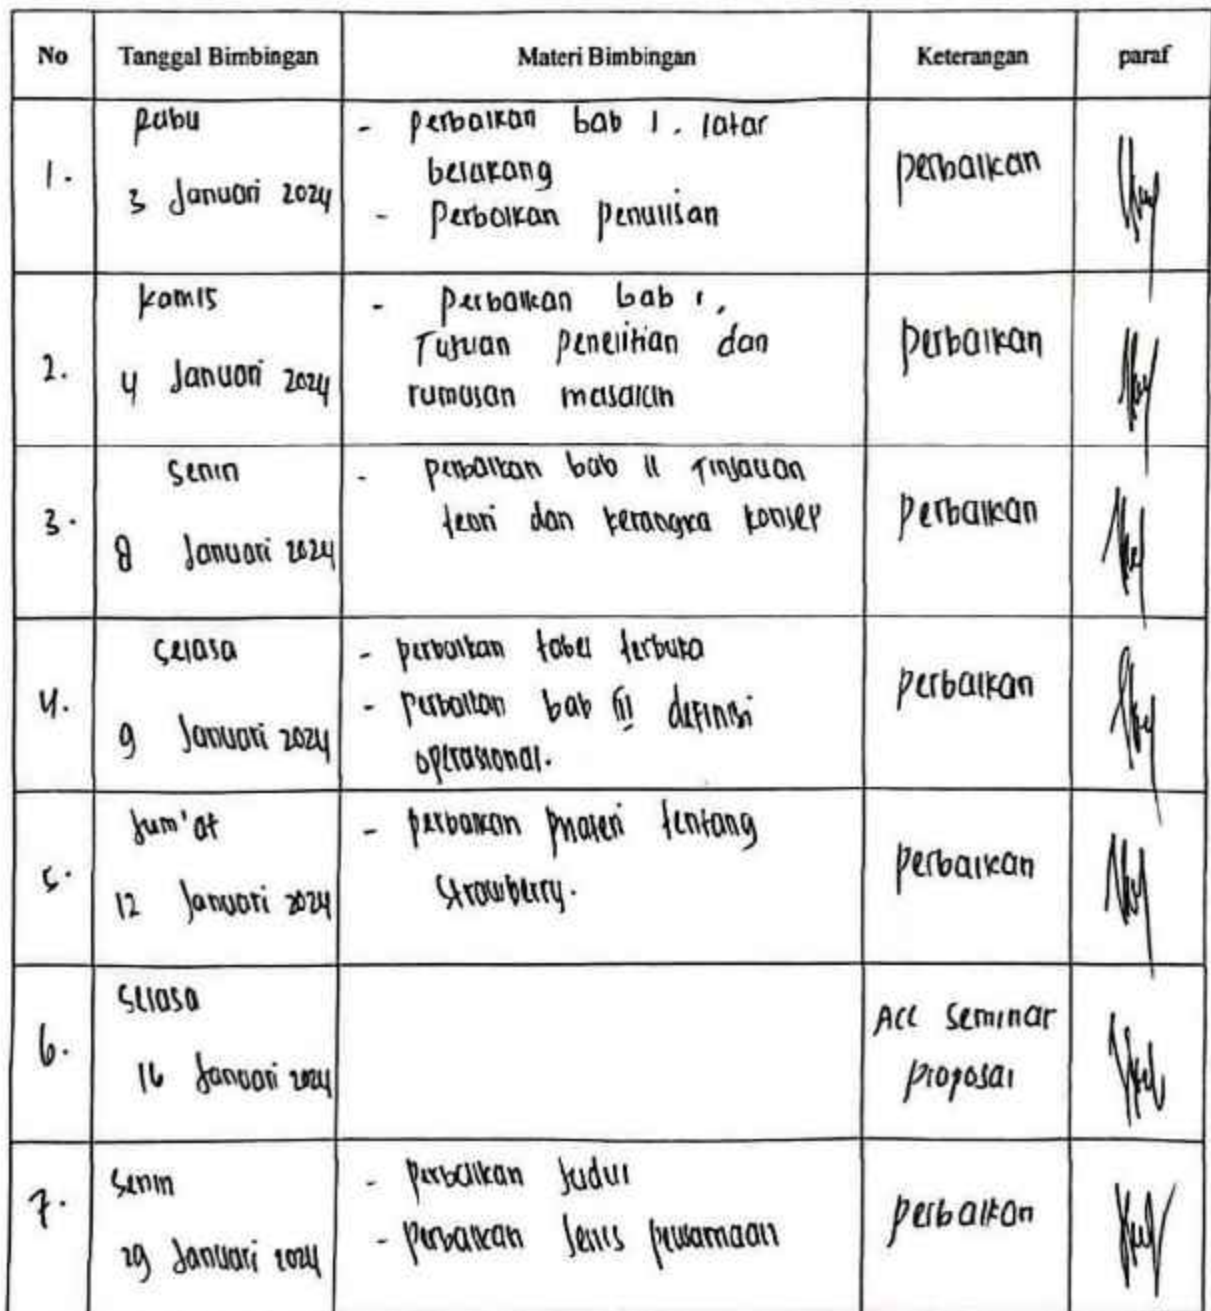 No Tanggal Bimbingan Materi Bimbingan Keterangan paraf
1. Rabu
3 Januari 2024
- perbaikan bab 1. latar
belakang
- Perbaikan penulisan
perbaikan
2. Kamis
4 Januari 2024
- perbaikan bab 1,
Tujuan penelitian dan
rumusan masalah
perbaikan
3. Senin
8 Januari 2024
- perbaikan bab II Tinjauan
teori dan kerangka konsep
perbaikan
4. Selasa
9 Januari 2024
- perbaikan tabel terbuka
- perbaikan bab III definisi
operasional.
perbaikan
5. Jum'at
12 Januari 2024
- perbaikan materi tentang
strawberry.
perbaikan
6. Selasa
16 Januari 2024
Acc seminar
proposal
7. Senin
29 Januari 2024
- perbaikan judul
- perbaikan jenis
perbaikan